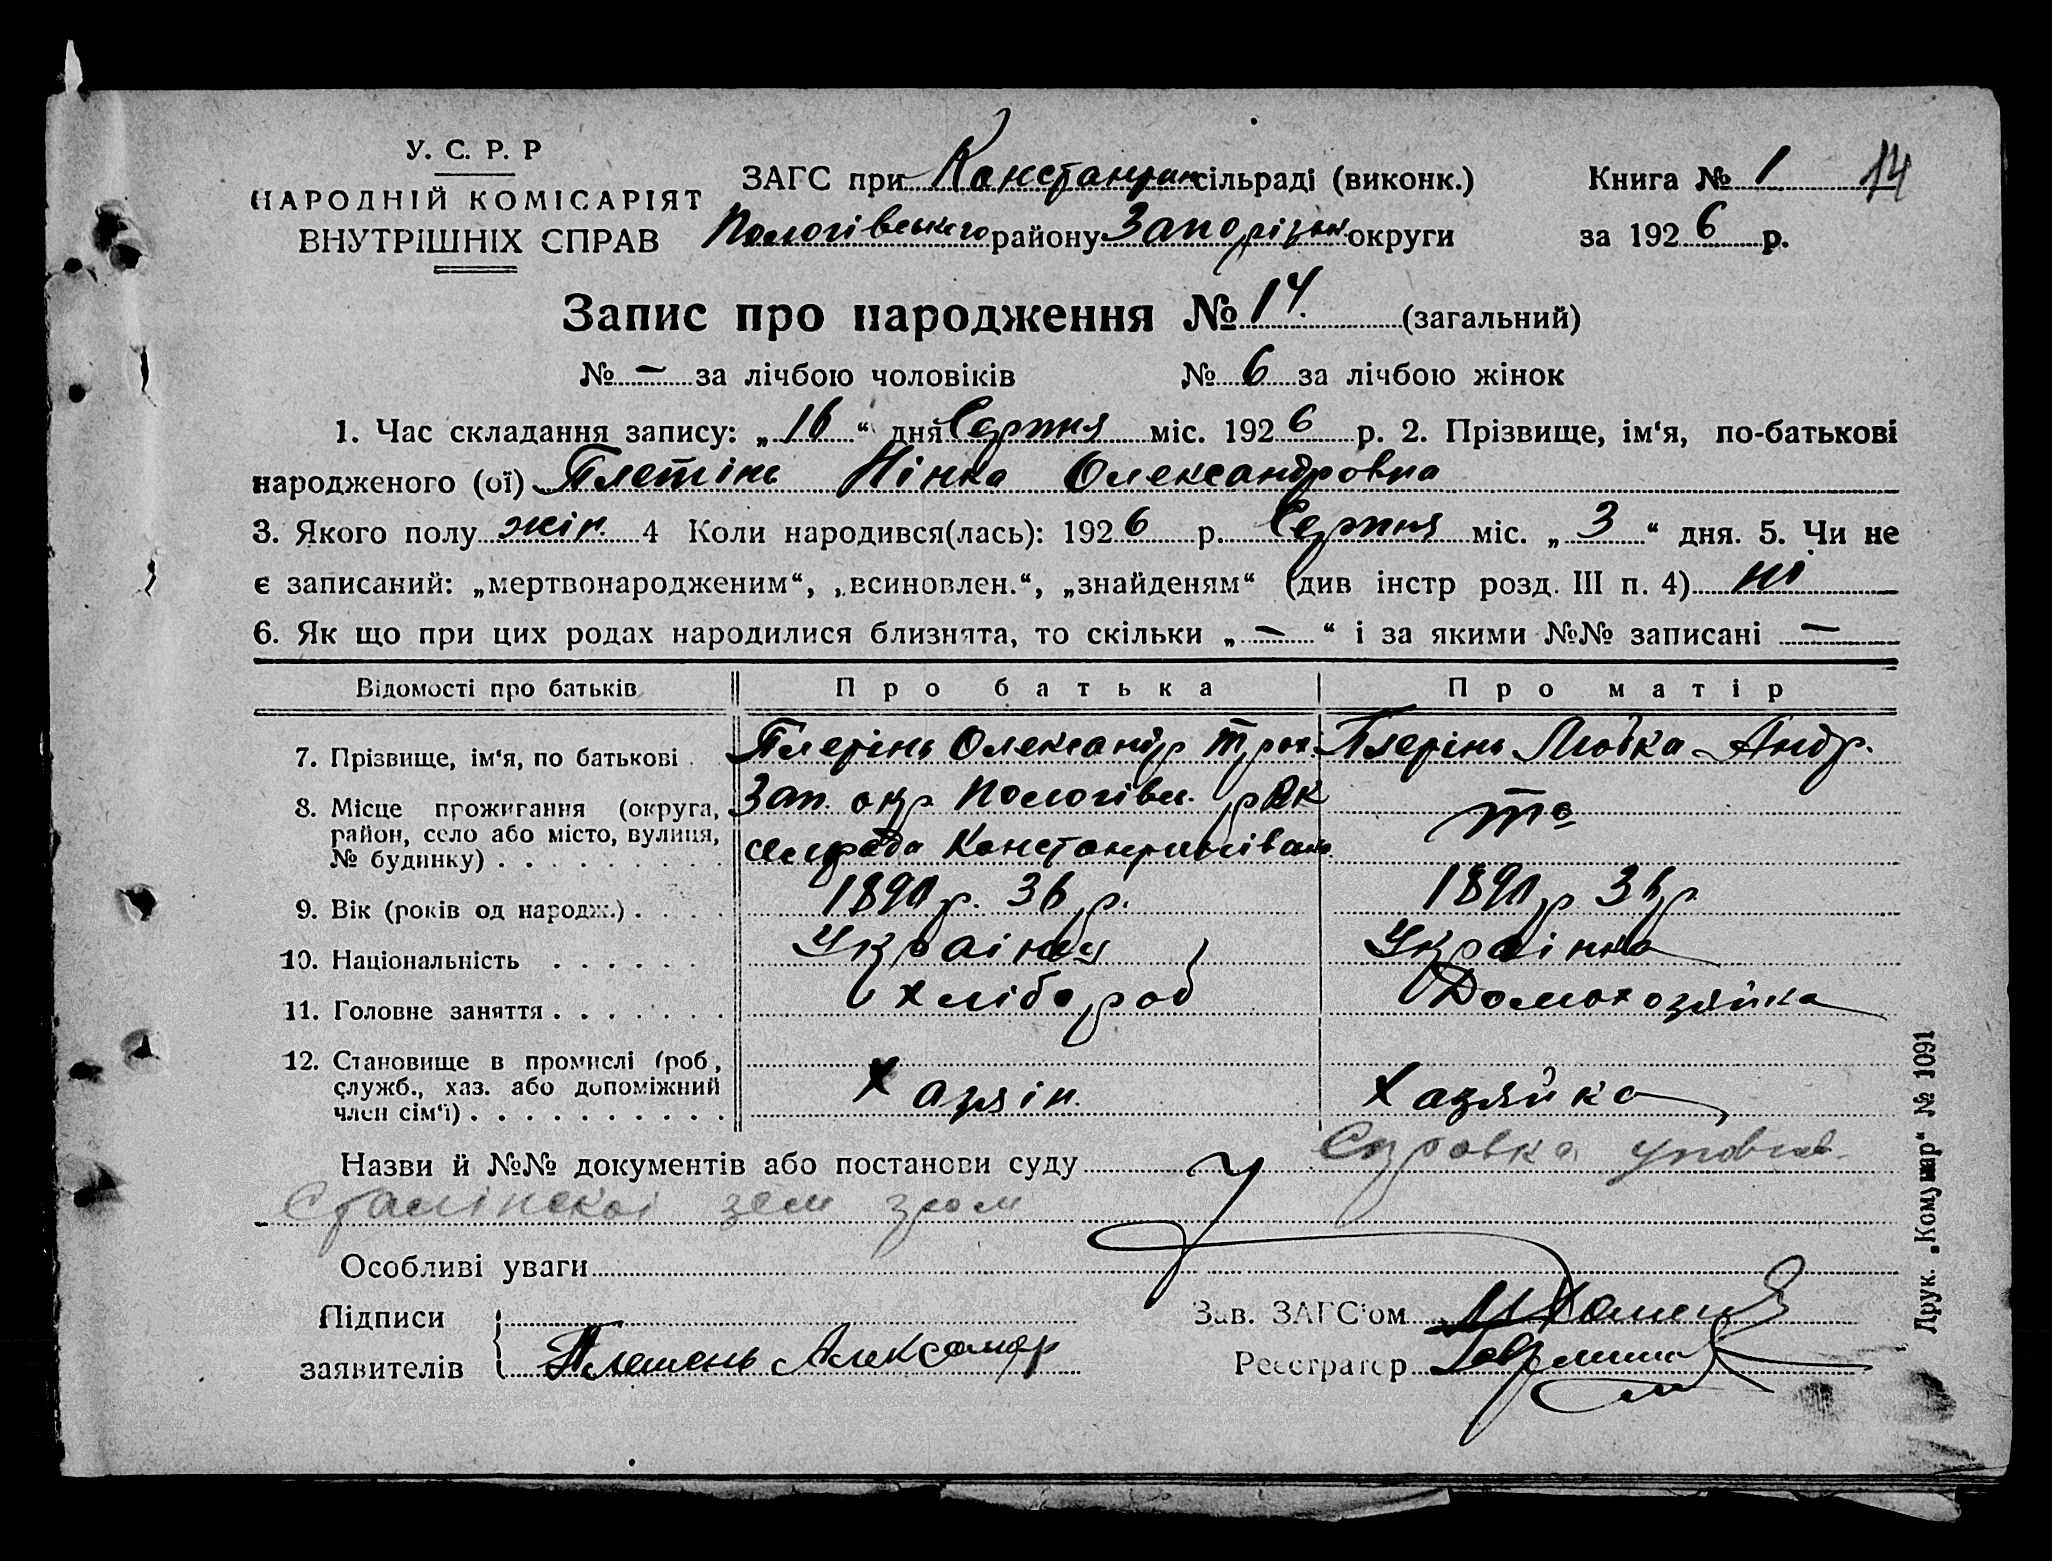 У. С. Р. Р
НАРОДНІЙ КОМІСАРІЯТ
ВНУТРІШНІХ СПРАВ
ЗАГС при Константин сільраді (виконк.)
Пологівського району Запорізьк. округи
Книга № 1 14
за 1926 р.
Запис про народження № 14. (загальний)
№ — за лічбою чоловіків № 6 за лічбою жінок
1. Час складання запису: „16“ дня Серпня міс. 1926 р. 2. Прізвище, ім‘я, по-батькові
народженого (ої) Плетінь Нінка Олександровна
3. Якого полу жін. 4 Коли народився(лась): 1926 р. Серпня міс. „3“ дня. 5. Чи не
є записаний: „мертвонародженим“, „всиновлен.“, „знайденям“ (див інстр розд. III п. 4) ні
6. Як що при цих родах народилися близнята, то скільки „—“ і за якими №№ записані —
Відомості про батьків Про батька Про матір
7. Прізвище, ім‘я, по батькові Плетінь Олександр Трох. Плетінь Любка Андр.
8. Місце проживання (округа, район, село або місто, вулиця, № будинку) Зап. окр. Пологівск. рвк сельрада Константинівка то
9. Вік (років од народж.) 1890 р. 36 р. 1890 р 36 р
10. Національність Украінец Украінка
11. Головне заняття хлібороб Домохозяйка
12. Становище в промислі (роб, служб., хаз. або допоміжний член сім‘ї) Хазяін. Хазяйка
Назви й №№ документів або постанови суду Справка уповнов.
Сталінскоі зем гром
Особливі уваги
Підписи
заявителів Плетень Александр
Зав. ЗАГС‘ом
Реєстратор
Друк. „Комунар“ № 1091